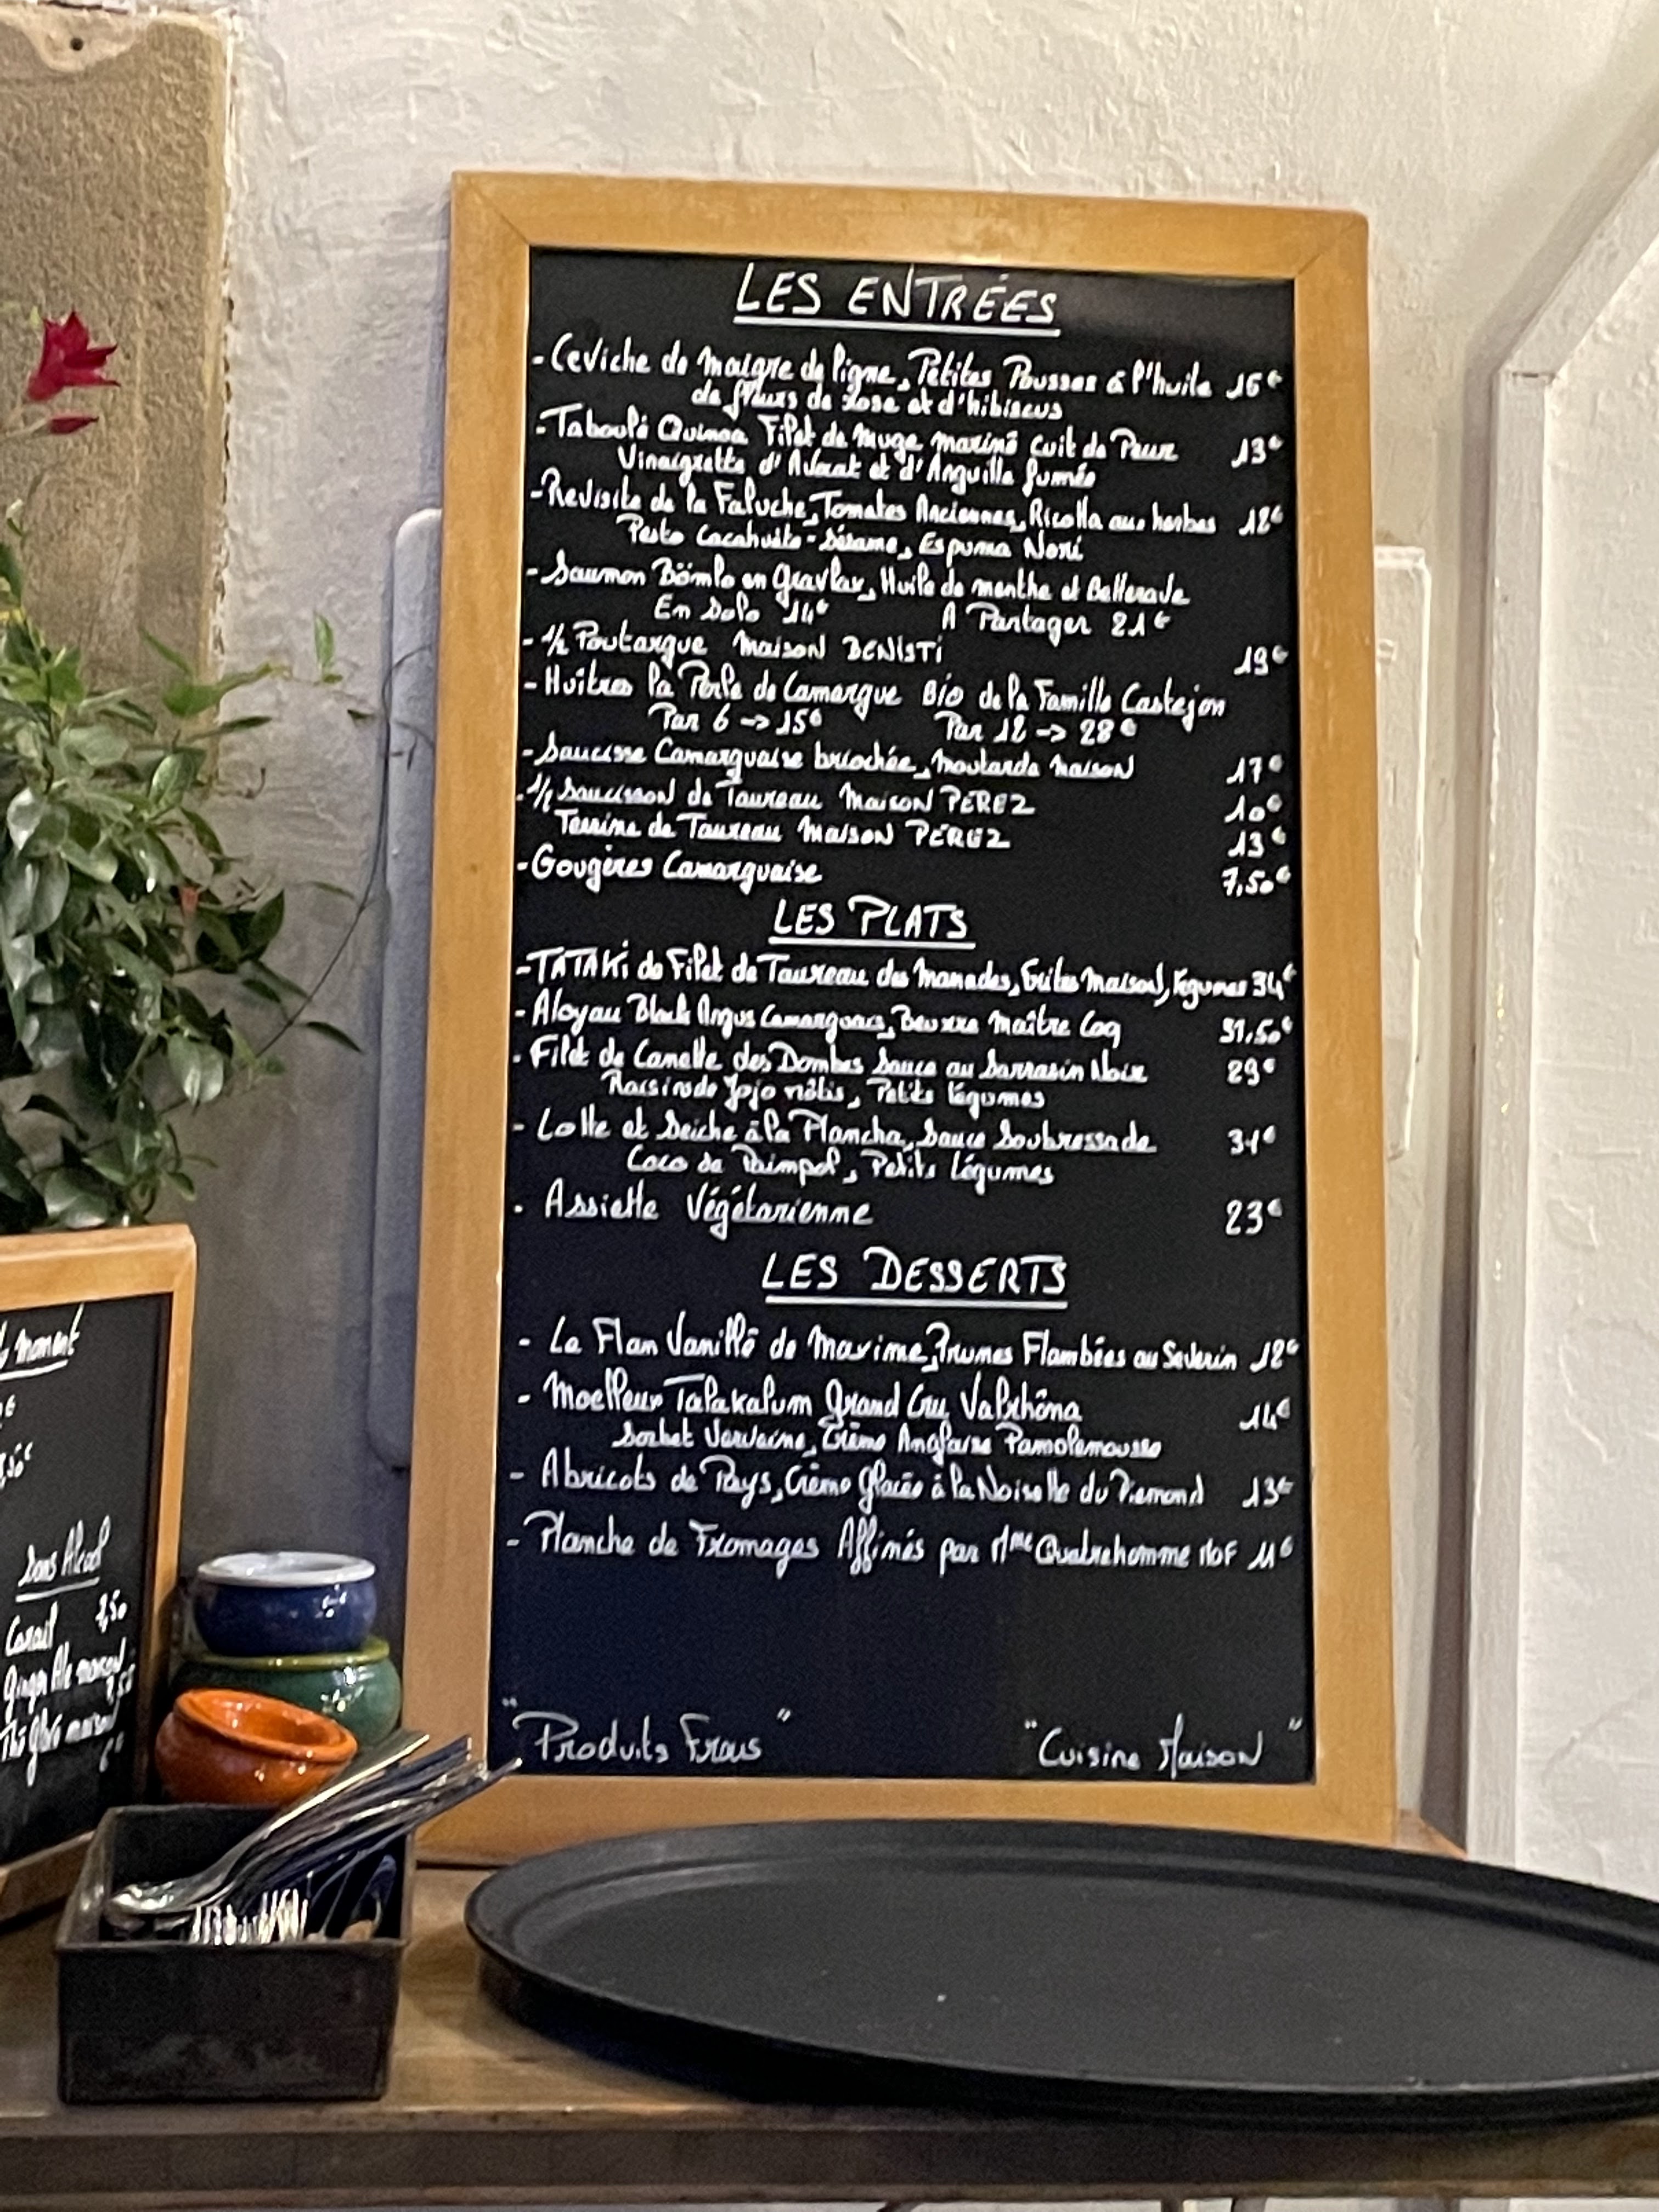 LES ENTRÉES
- Ceviche de maigre de ligne, Petites Pousses à l'huile 16€
de fleurs de rose et d'hibiscus
- Taboulé Quinoa Filet de muge mariné cuit de Peur 13€
Vinaigrette d'Avocat et d'Anguille fumée
- Revisite de la Faluche, Tomates Anciennes, Ricotta aux herbes 12€
Pesto Cacahuète-Sésame, Espuma Nori
- Saumon Bömlo en Gravlax, Huile de menthe et Betterave
En Solo 14€ A Partager 21€
- 1/2 Poutargue Maison BENISTI 19€
- Huîtres la Perle de Camargue Bio de la Famille Castejon
Par 6 -> 15€ Par 12 -> 28€
- Saucisse Camarguaise briochée, moutarde maison 17€
- 1/2 Saucisson de Taureau Maison PEREZ 10€
Terrine de Taureau Maison PEREZ 13€
- Gougères Camarguaise 7,50€
LES PLATS
- TATAKi de Filet de Taureau des Manades, frites Maison, légumes 34€
- Aloyau Black Angus Camarguais, Beurre Maître Coq 31,50€
- Filet de Canette des Dombes Sauce au Sarrasin Noix 29€
Raisins de Jojo rôtis, Petits légumes
- Lotte et Seiche à la Plancha, Sauce Soubressade 31€
Coco de Paimpol, Petits légumes
- Assiette Végétarienne 23€
LES DESSERTS
- Le Flan Vanillé de Maxime, Prunes Flambées au Severin 12€
- Moelleux Talakalum Grand Cru Valrhôna 14€
Sorbet Verveine, Crème Anglaise Pamplemousse
- Abricots de Pays, Crème Glacée à la Noisette du Piemond 13€
- Planche de Fromages Affinés par Mme Quatrehomme MOF 11€
"Produits Frais" "Cuisine Maison"
moment
Sans Alcool
Ginger Ale maison
Thé glacé maison
6€